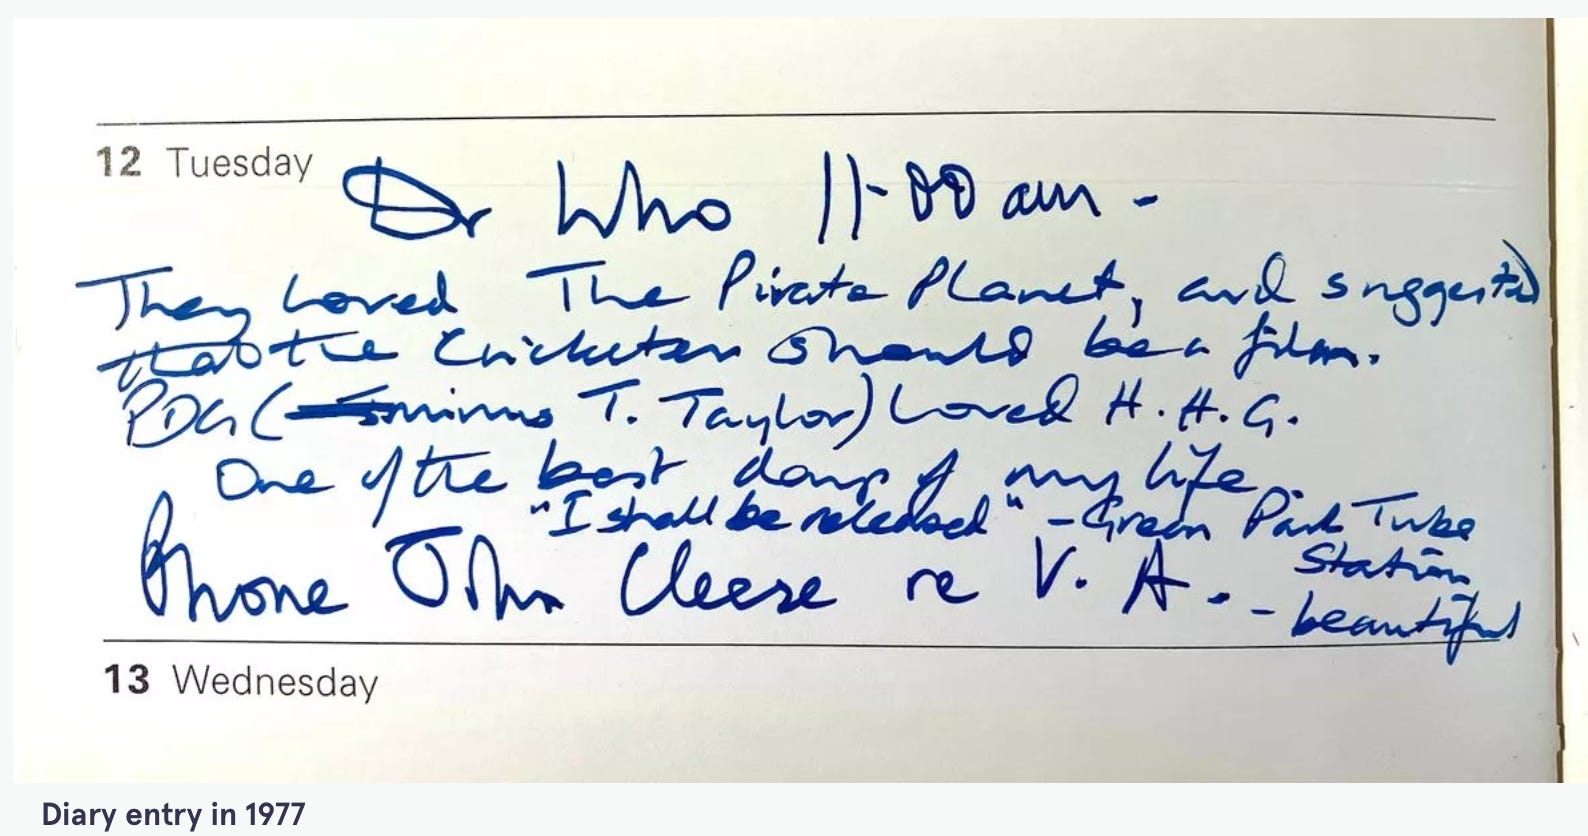 12 Tuesday
Dr Who 11.00 am -
They loved The Pirate Planet, and suggested
that the Cricketers should be a film.
PDG ( minus T. Taylor) loved H.H.G.
One of the best days of my life
"I shall be released" - Green Park Tube
Station
- beautiful
Phone John Cleese re V.A.
13 Wednesday
Diary entry in 1977